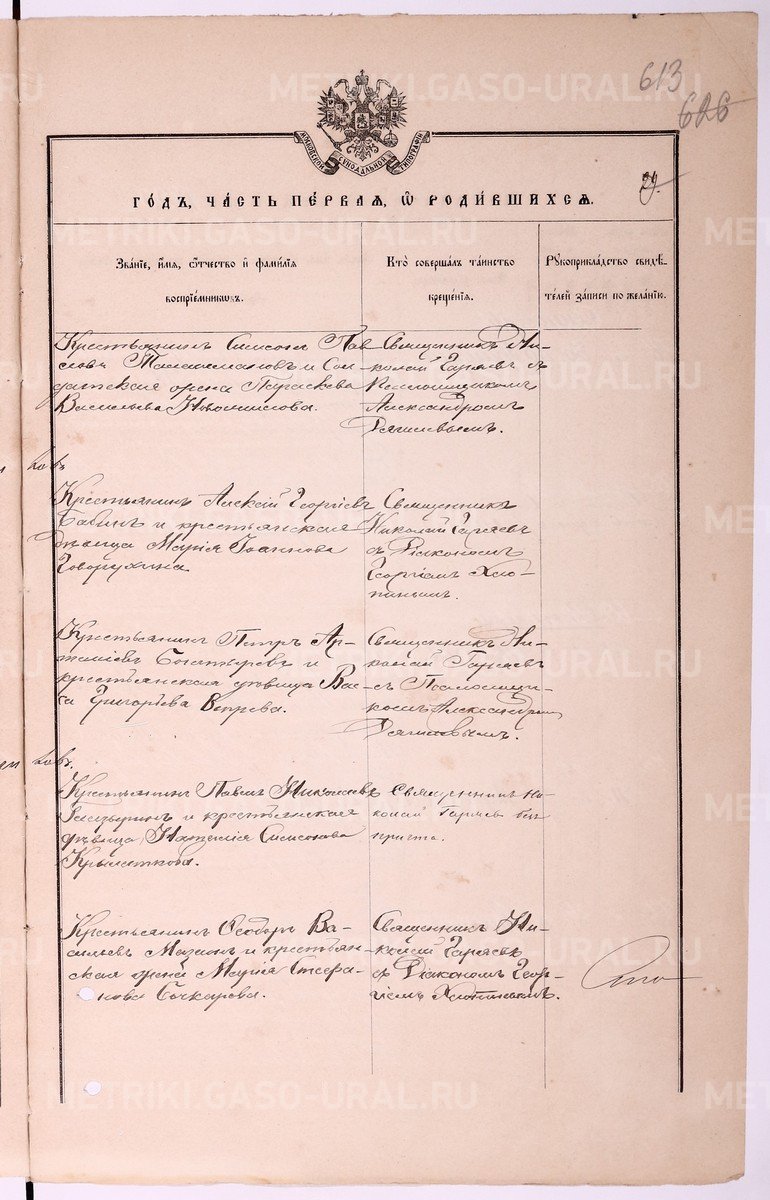 613
626
МОСКОВСКОЙ СѴНОДАЛЬНОЙ ТИПОГРАФІИ
29.
ГО́ДЪ, ЧА́СТЬ ПЕ́РВАЯ, Ѽ РОДИ́ВШИХСѦ.
Зва́нїе, и́мѧ, ѻ҆́тчество и҆ фами́лїѧ
воспрїе́мниковъ.
Кто̀ соверша́лъ та́инство
креще́нїѧ.
Рꙋкоприкла́дство свидѣ́-
телей за́писи по жела́нїю.
Крестьянинъ Симеонъ Пав
ловъ и Сол
датская жена Параскева
Васильева
Священникъ Ни-
колай Гаряевъ съ
Псаломщикомъ
Александромъ
Дягилевымъ.
ковъ
Крестьянинъ Алексій Георгіевъ
Бабинъ и крестьянская
дѣвица Марія Іоаннова
Говорухина
Священникъ
Николай Гаряевъ
съ Діакономъ
Георгіемъ Хло-
пинымъ.
Крестьянинъ Петръ Ар-
теміевъ Богатыревъ и
крестьянская дѣвица Вас-
са Григорьева Вепрева.
Священникъ Ни-
колай Гаряевъ
съ Псаломщи-
комъ Александромъ
Дягилевымъ.
ковъ.
Крестьянинъ Павелъ Николаевъ
и крестьянская
дѣвица Наталія Симеонова
Крылаткова.
Священникъ Ни-
колай Гаряевъ безъ
причта.
Крестьянинъ Ѳеодоръ Ва-
сильевъ Мазеинъ и крестьян-
ская жена Марія Стефа-
нова Бочкарева.
Священникъ Ни-
колай Гаряевъ
съ Діакономъ Геор-
гіемъ Хлопинымъ.
METRIKI.GASO-URAL.RU